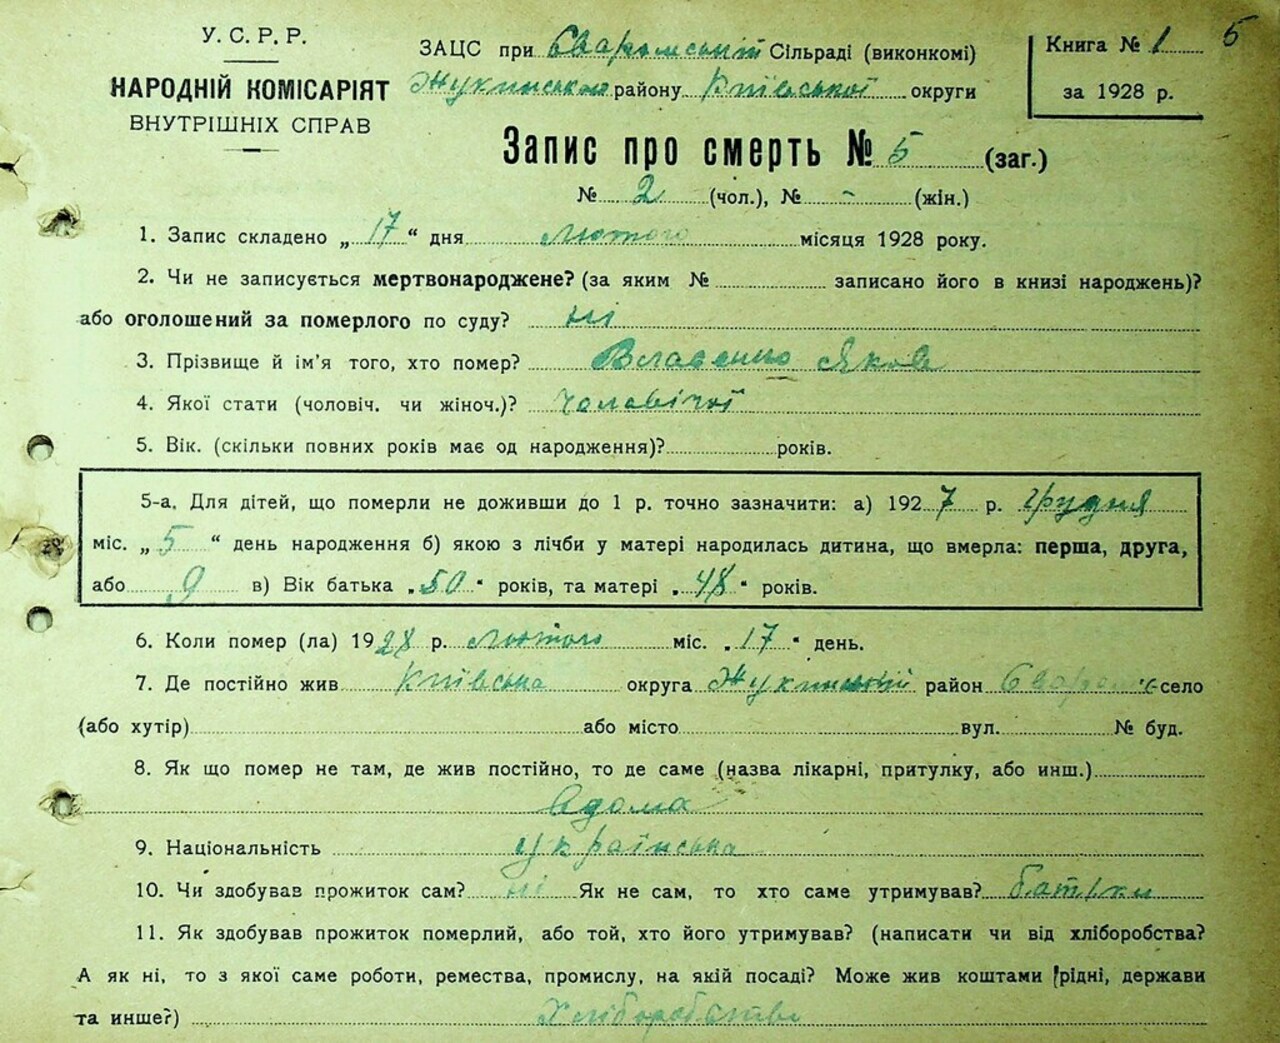 У. С. Р. Р.
НАРОДНІЙ КОМІСАРІЯТ
ВНУТРІШНІХ СПРАВ
ЗАЦС при Сваромській Сільраді (виконкомі)
Жукинського району Київської округи
Книга № 1
за 1928 р.
5
Запис про смерть № 5 (заг.)
№ 2 (чол.), № - (жін.)
1. Запис складено „ 17 “ дня лютого місяця 1928 року.
2. Чи не записується мертвонароджене? (за яким № записано його в книзі народжень)?
або оголошений за померлого по суду? ні
3. Прізвище й ім'я того, хто помер? Власенко Яков
4. Якої стати (чоловіч. чи жіноч.)? чоловічої
5. Вік. (скільки повних років має од народження)? років.
5-а. Для дітей, що померли не доживши до 1 р. точно зазначити: а) 1927 р. грудня
міс. „ 5 “ день народження б) якою з лічби у матері народилась дитина, що вмерла: перша, друга,
або 9 в) Вік батька „50“ років, та матері „48“ років.
6. Коли помер (ла) 1928 р. лютого міс. „17“ день.
7. Де постійно жив Київська округа Жукинський район село
(або хутір) або місто вул. № буд.
8. Як що помер не там, де жив постійно, то де саме (назва лікарні, притулку, або инш.)
вдома
9. Національність українська
10. Чи здобував прожиток сам? ні Як не сам, то хто саме утримував? батьки
11. Як здобував прожиток померлий, або той, хто його утримував? (написати чи від хліборобства?
А як ні, то з якої саме роботи, ремества, промислу, на якій посаді? Може жив коштами рідні, держави
та инше?) Хліборобство